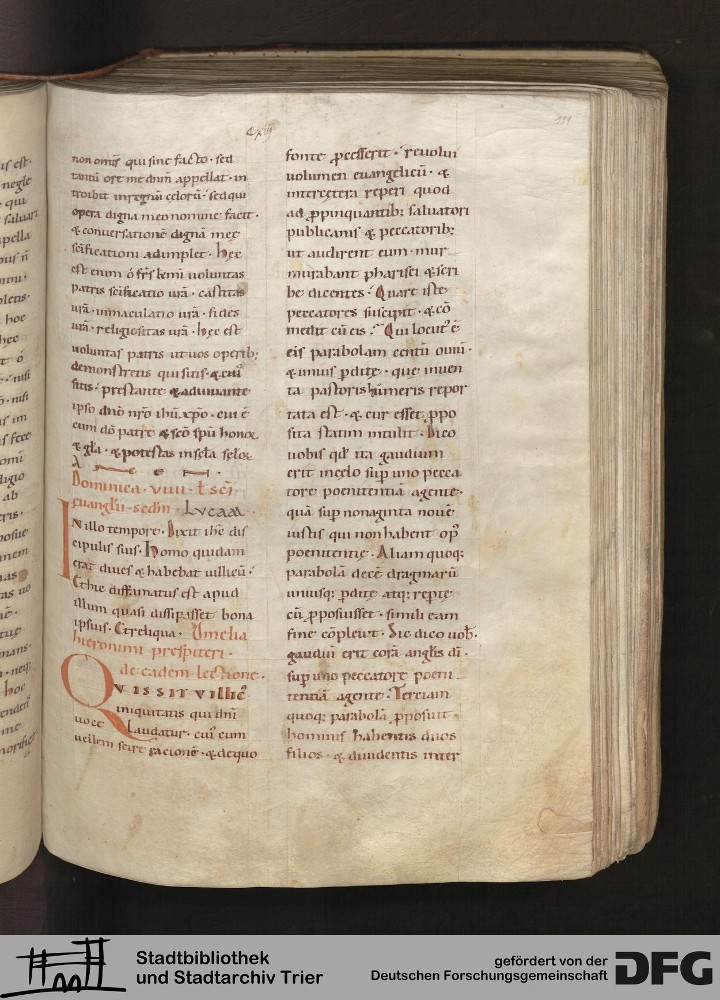 cxiij
181
non omis qui sine facto · sed
tantū ore me dnm̄ appellat · in
troibit in regnū celorū · sed qui
opera digna meo nomine facit ·
& conversationē dignā mee
scificationi adimplet · hec
est enim ō frs̄ kemi voluntas
patris scificatio urā · castitas
urā · inmaculatio urā · fides
urā · religiositas urā · hec est
voluntas patris ut vos operib;
demonstretis qui sitis · & cuī
sitis · prestante & adiuvante
ipso dn̄o nr̄o ihū xp̄o · cui ē
cum dō patre & scō spū honor
& gla · & potestas in scla sclor
A m e n ·
Dominica · viiii · l sci
euanglii · sedm · Lvcam
In illo tempore · Dixit ihc̄ dis
cipulis suis · Homo quidam
erat dives & habebat villicū ·
Et hic diffamatus est apud
illum quasi dissipasset bona
ipsius · Et reliqua · Omelia
hieronimi presbiteri ·
de eadem lectione ·
Qvis sit villic⁹
iniquitatis qui dnī
voce laudatur · cuī cum
vellem scire racionē · & de quo
fonte pcesserit · revolui
volumen euangelicū · &
inter cetera reperi quod
ad ppinquantib; salvatori
publicanis & peccatorib;
ut audirent eum · mur
murabant pharisei & scri
be dicentes · Quare iste
peccatores suscipit · & cō
medit cū eis · Qui locut⁹ ē
eis parabolam centū oviū ·
& unius pdite · que inven
ta pastoris humeris repor
tata est · & cur esset ppo
sita statim intulit · Dico
vobis qd ita gaudium
erit in celo sup uno pecca
tore poenitentiā agente ·
quā sup nonaginta nove
iustis qui non habent op⁹
poenitentie · Aliam quoq;
parabolā decē dragmarū
uniusq; pdite atq; repte
cū pposuisset · simili eam
fine cōplevit · Sic dico vob̄ ·
gaudiū erit corā angłis dī ·
sup uno peccatore poeni
tentiā agente · Terciam
quoq; parabolā pposuit ·
hominis habentis duos
filios · & dividentis inter
Stadtbibliothek
und Stadtarchiv Trier
gefördert von der
Deutschen Forschungsgemeinschaft
DFG